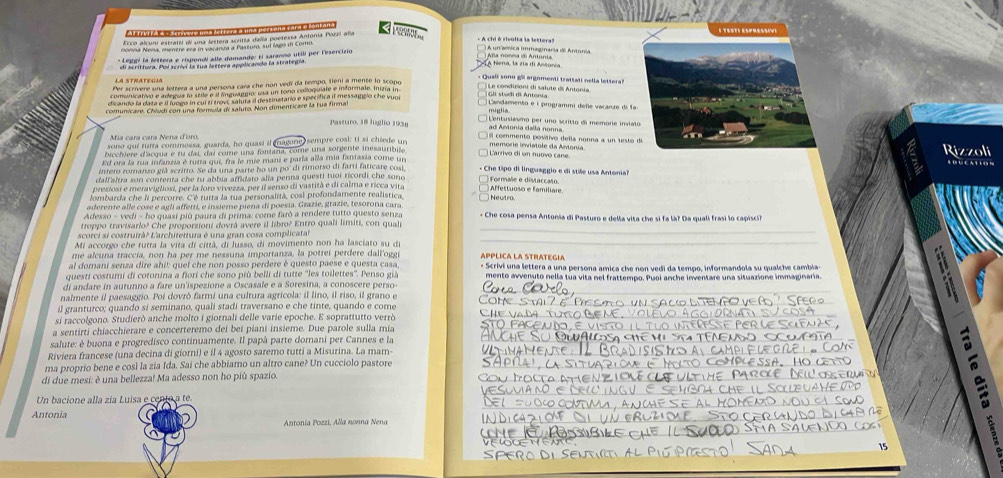 ATTIVITÀ 4 - Scrivere una lettera a una persona cara e lontana
Ecco alcuni estratti di una lettera scritta dalla poetessa Antonia Pozzi alla
nonna Nena, mentre era in vacanza a Pasturo, sul lago di Como.
• Leggi la lettera e rispondi alle domande: ti saranno utili per l'esercizio
di scrittura. Poi scrivi la tua lettera applicando la strategia.
LA STRATEGIA
Per scrivere una lettera a una persona cara che non vedi da tempo, tieni a mente lo scopo
comunicativo e adegua lo stile e il linguaggio: usa un tono colloquiale e informale. Inizia in-
dicando la data e il luogo in cui ti trovi, saluta il destinatario e specifica il messaggio che vuoi
comunicare. Chiudi con una formula di saluto. Non dimenticare la tua firma!
Pasturo, 18 luglio 1938
Mia cara cara Nena d'oro,
sono qui tutta commossa, guarda, ho quasi il magone sempre così: ti si chiede un
bicchiere d'acqua e tu dai, dai come una fontana, come una sorgente inesauribile.
Ed ora la tua infanzia è tutta qui, fra le mie mani e parla alla mia fantasia come un
intero romanzo già scritto. Se da una parte ho un po' di rimorso di farti faticare così,
dall'altra son contenta che tu abbia affidato alla penna questi tuoi ricordi che sono
preziosi e meravigliosi, per la loro vivezza, per il senso di vastità e di calma e ricca vita
lombarda che li percorre. C'è tutta la tua personalità, così profondamente realistica,
aderente alle cose e agli affetti, e insieme piena di poesia. Grazie, grazie, tesorona cara.
Adesso – vedi – ho quasi più paura di prima: come farò a rendere tutto questo senza
troppo travisarlo? Che proporzioni dovrà avere il libro? Entro quali limiti, con quali
scorci si costruirà? L'architettura è una gran cosa complicata!
Mi accorgo che tutta la vita di città, di lusso, di movimento non ha lasciato su di
me alcuna traccia, non ha per me nessuna importanza, la potrei perdere dall'oggi
al domani senza dire ahi!: quel che non posso perdere è questo paese e questa casa,
questi costumi di cotonina a fiori che sono più belli di tutte "les toilettes". Penso già
di andare in autunno a fare un'ispezione a Oscasale e a Soresina, a conoscere perso-
nalmente il paesaggio. Poi dovrò farmi una cultura agricola: il lino, il riso, il grano e
il granturco; quando si seminano, quali stadi traversano e che tinte, quando e come
si raccolgono. Studierò anche molto i giornali delle varie epoche. E soprattutto verrò
a sentirti chiacchierare e concerteremo dei bei piani insieme. Due parole sulla mia
salute: è buona e progredisco continuamente. Il papà parte domani per Cannes e la
Riviera francese (una decina di giorni) e il 4 agosto saremo tutti a Misurina. La mam-
ma proprio bene e così la zia Ida. Sai che abbiamo un altro cane? Un cucciolo pastore
di due mesi: è una bellezza! Ma adesso non ho più spazio.
Un bacione alla zia Luisa e cento a te.
Antonia
Antonia Pozzi, Alla nonna Nena
LEGGERE
E SCRIVERE
I TESTI ESPRESSIVI
• A chi è rivolta la lettera?
A un'amica immaginaria di Antonia.
Alla nonna di Antonia.
A Nena, la zia di Antonia.
• Quali sono gli argomenti trattati nella lettera?
Le condizioni di salute di Antonia.
Gli studi di Antonia.
L'andamento e i programmi delle vacanze di fa-
miglia.
L'entusiasmo per uno scritto di memorie inviato
ad Antonia dalla nonna.
Il commento positivo della nonna a un testo di
memorie inviatole da Antonia.
L'arrivo di un nuovo cane.
• Che tipo di linguaggio e di stile usa Antonia?
Formale e distaccato.
Affettuoso e familiare.
Neutro.
• Che cosa pensa Antonia di Pasturo e della vita che si fa là? Da quali frasi lo capisci?
APPLICA LA STRATEGIA
• Scrivi una lettera a una persona amica che non vedi da tempo, informandola su qualche cambia-
mento avvenuto nella tua vita nel frattempo. Puoi anche inventare una situazione immaginaria.
Cara Carla,
COME STAI? È PASSATO UN SACCO DI TEMPO VERO? SPERO
CHE VADA TUTTO BENE. VOLEVO AGGIORNARTI SU COSA
STO FACENDO, E VISTO IL TUO INTERESSE PER LE SCIENZE,
ANCHE SU QUALCOSA CHE MI STA TENENDO OCCUPATA
ULTIMAMENTE: IL BRADISISMO AI CAMPI FLEGREI. COME
SAPRAI, LA SITUAZIONE È MOLTO COMPLESSA. HO LETTO
CON MOLTA ATTENZIONE LE ULTIME PAROLE DELL'OSSERVATORIO
VESUVIANO E DELL'INGV E SEMBRA CHE IL SOLLEVAMENTO
DEL SUOLO CONTINUI, ANCHE SE AL MOMENTO NON CI SONO
INDICAZIONI DI UN'ERUZIONE. STO CERCANDO DI CAPIRE
COME È POSSIBILE CHE IL SUOLO STIA SALENDO COSÌ
VELOCEMENTE.
SPERO DI SENTIRTI AL PIÙ PRESTO! SADA
15
Rizzoli
EDUCATION
Rizzoli
Tra le dita